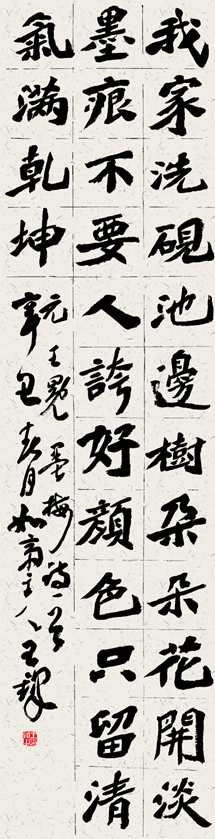 我家洗硯池邊樹朵朵花開淡
墨痕不要人誇好顏色只留清
氣滿乾坤
元王冕墨梅詩一首
辛丑春月